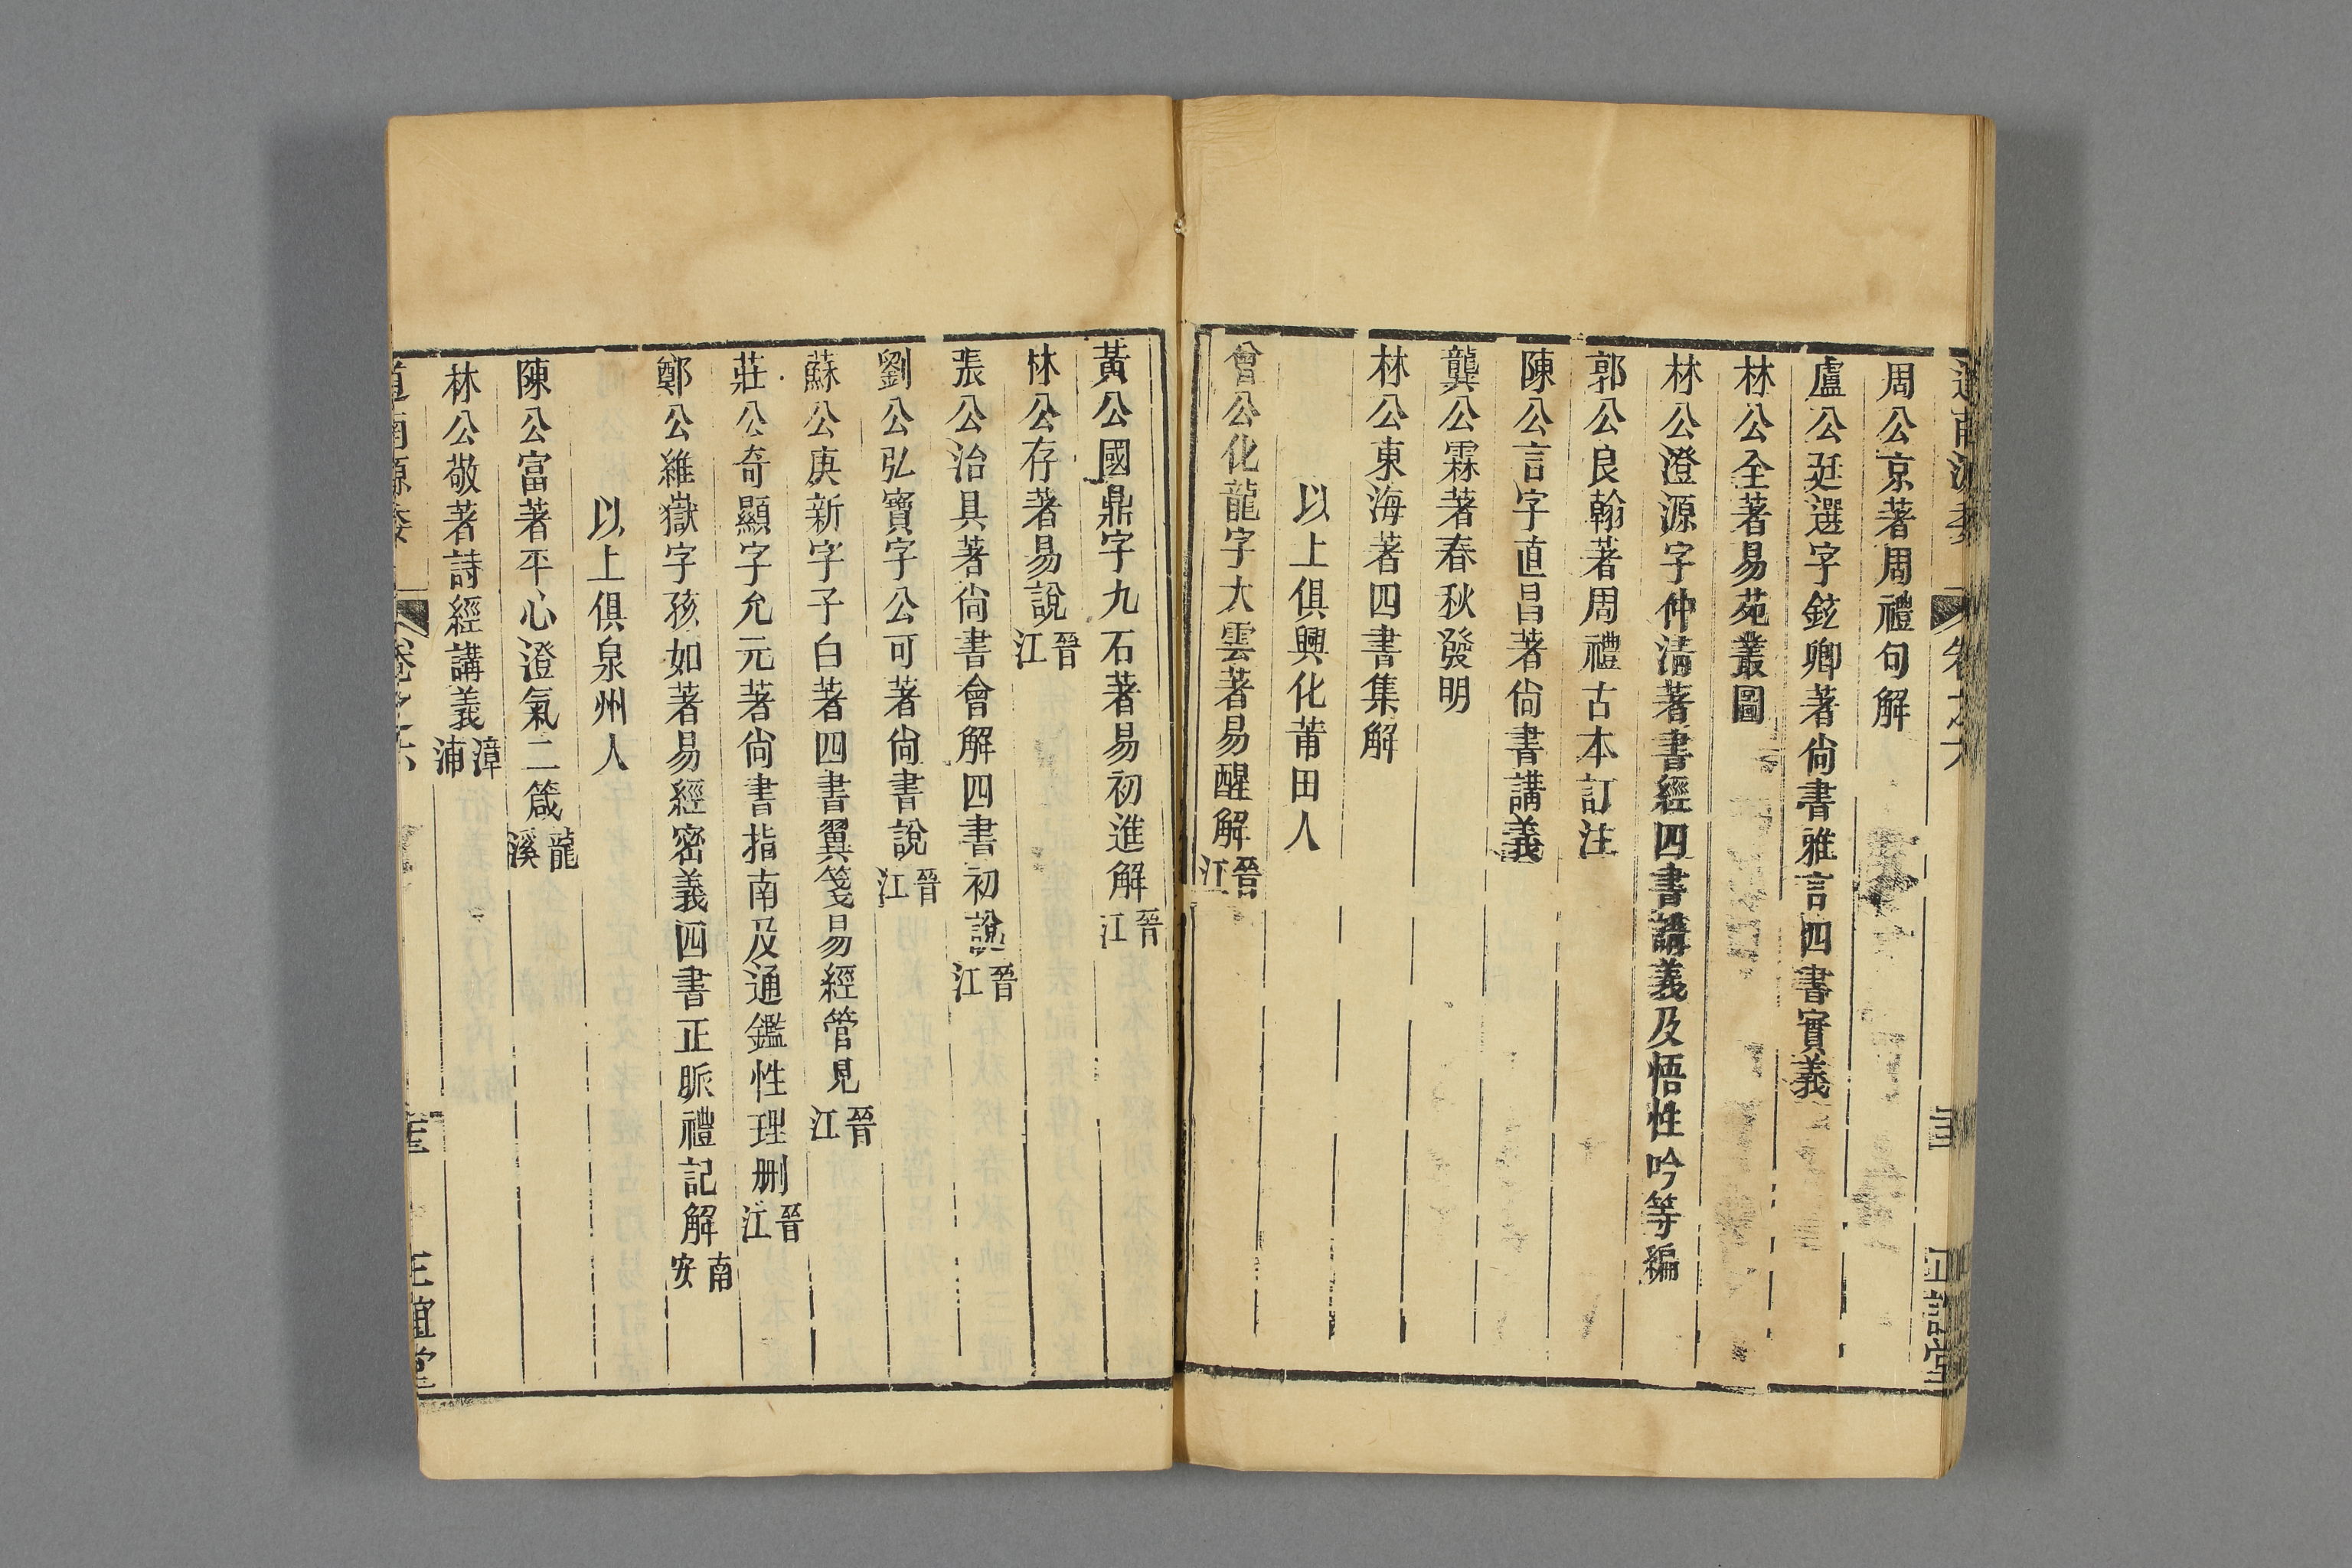 周公京著周禮句解
盧公廷選字鉉卿著尙書雅言四書實義
林公全著易苑叢圖
林公澄源字仲淸著書經四書講義及悟性吟等編
郭公良翰著周禮古本訂注
陳公言字直昌著尙書講義
龔公霖著春秋發明
林公東海著四書集解
以上俱興化莆田人
曾公化龍字大雲著易醒解晉江
黃公國鼎字九石著易初進解晉江
林公存著易說晉江
張公治具著尙書會解四書初說晉江
劉公弘寶字公可著尙書說晉江
蘇公庚新字子白著四書翼箋易經管見晉江
莊公奇顯字允元著尙書指南及通鑑性理刪晉江
鄭公維嶽字孩如著易經密義四書正脈禮記解南安
以上俱泉州人
陳公富著平心澄氣二箴龍溪
林公敬著詩經講義漳浦
道南源委 卷之六 正誼堂